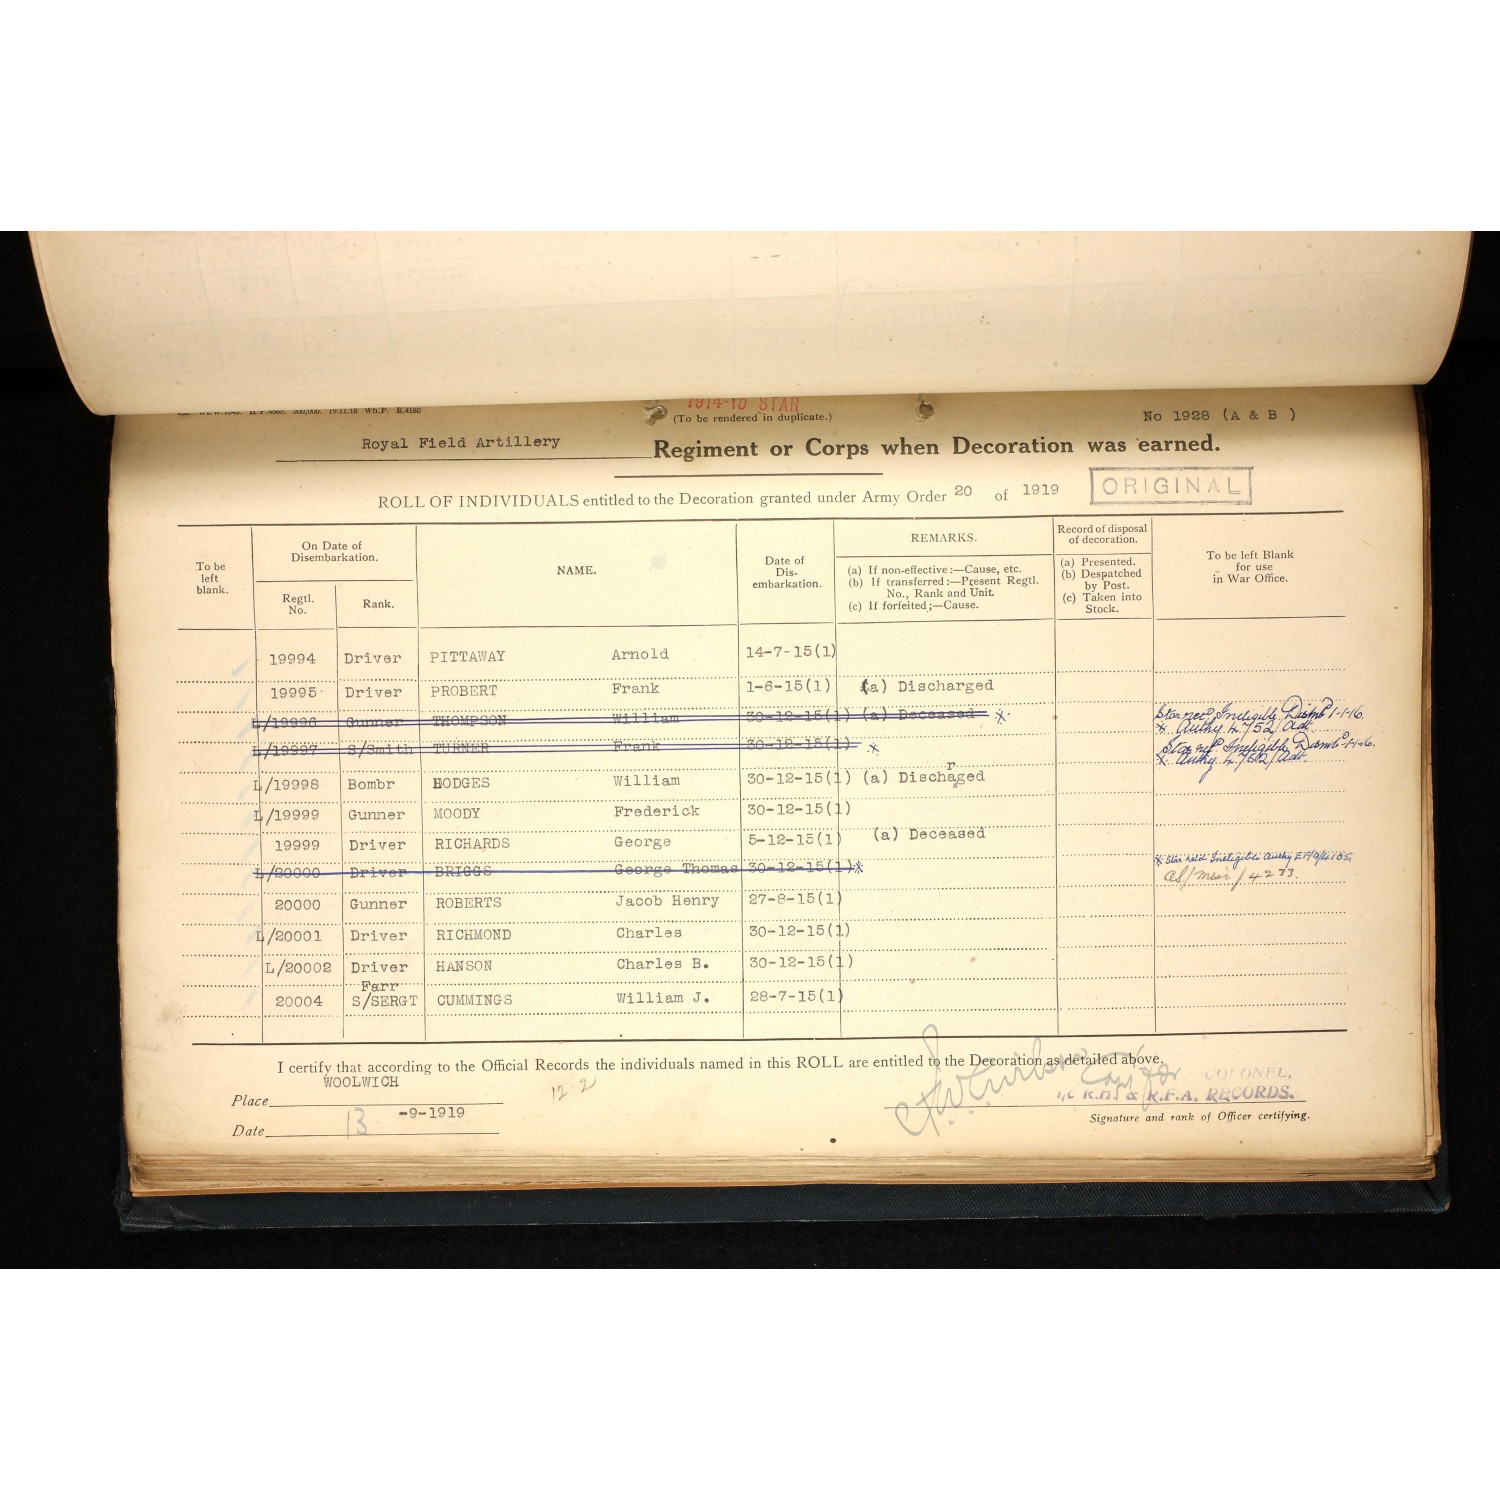 1914-15 STAR
(To be rendered in duplicate.)
No 1928 (A & B )
Royal Field Artillery Regiment or Corps when Decoration was earned.
ROLL OF INDIVIDUALS entitled to the Decoration granted under Army Order 20 of 1919
ORIGINAL
To be left blank.
On Date of Disembarkation.
Regtl. No.
Rank.
NAME.
Date of Dis-embarkation.
REMARKS.
(a) If non-effective:—Cause, etc.
(b) If transferred:—Present Regtl. No., Rank and Unit.
(c) If forfeited;—Cause.
Record of disposal of decoration.
(a) Presented.
(b) Despatched by Post.
(c) Taken into Stock.
To be left Blank for use in War Office.
19994 Driver PITTAWAY Arnold 14-7-15(1)
19995 Driver PROBERT Frank 1-6-15(1) (a) Discharged
L/19996 Gunner THOMPSON William 30-12-15(1) (a) Deceased * Star Ineligible 1-1-16.
* Authy 4752/Adt.
L/19997 S/Smith TURNER Frank 30-12-15(1) * Star Ineligible 1-1-16.
* Authy 4752/Adt.
L/19998 Bombr HODGES William 30-12-15(1) (a) Discharged
L/19999 Gunner MOODY Frederick 30-12-15(1)
19999 Driver RICHARDS George 5-12-15(1) (a) Deceased
L/20000 Driver BRIGGS George Thomas 30-12-15(1)* * Star held Ineligible Authy
/4233.
20000 Gunner ROBERTS Jacob Henry 27-8-15(1)
L/20001 Driver RICHMOND Charles 30-12-15(1)
L/20002 Driver HANSON Charles B. 30-12-15(1)
20004 Farr S/SERGT CUMMINGS William J. 28-7-15(1)
I certify that according to the Official Records the individuals named in this ROLL are entitled to the Decoration as detailed above.
Place WOOLWICH
12.2
Capt for COLONEL,
I/c R.H. & R.F.A. RECORDS.
Date 13 -9-1919
Signature and rank of Officer certifying.